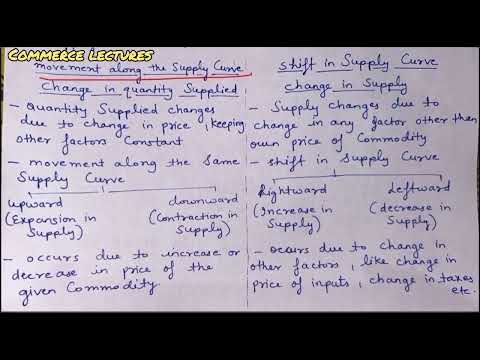 Commerce lectures
movement along the Supply Curve
Change in quantity Supplied
- Quantity Supplied changes
due to change in price, keeping
other factors Constant
- movement along the same
Supply Curve
upward
(Expansion in
Supply)
downward
(Contraction in
Supply)
- occurs due to increase or
decrease in price of the
given Commodity
shift in Supply Curve
change in Supply
- Supply changes due to
change in any factor other then
own price of Commodity
- shift in supply Curve
Rightward
(Increase in
Supply)
Leftward
(decrease in
Supply)
- occurs due to change in
other factors, like change in
price of inputs, change in taxes
etc.